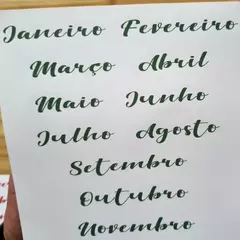 Janeiro Fevereiro
Março Abril
Maio Junho
Julho Agosto
Setembro
Outubro
Novembro